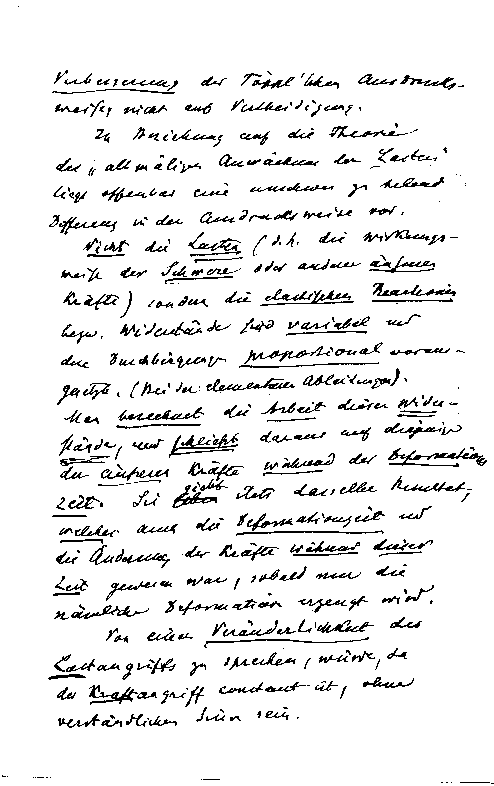 Verbesserung der Föppl'schen Ausdrucks-
weise, nicht aus Vertheidigung.
In Beziehung auf die Theorie
des „allmäligen Anwachsens der Lasten"
liegt offenbar eine unschwer zu hebende
Differenz in der Ausdrucksweise vor.
Nicht die Lasten (d.h. die Wirkungs-
weise der Schwere oder anderer äußerer
Kräfte) sondern die elastischen Reactionen
bezw. Widerstände sind variabel und
den Durchbiegungen proportional voraus-
gesetzt. (Bei den elementaren Ableitungen).
Man berechnet die Arbeit dieser Wider-
stände, und schließt daraus auf diejenige
der äußeren Kräfte während der Deformations
zeit. Sie giebt stets dasselbe Resultat,
welches auch die Deformationszeit und
die Änderung der Kräfte während dieser
Zeit gewesen war, sobald nur die
nämliche Deformation erzeugt wird.
Von einer Veränderlichkeit des
Lastangriffs zu sprechen, würde, da
der Kraftangriff constant ist, ohne
verständlichen Sinn sein.